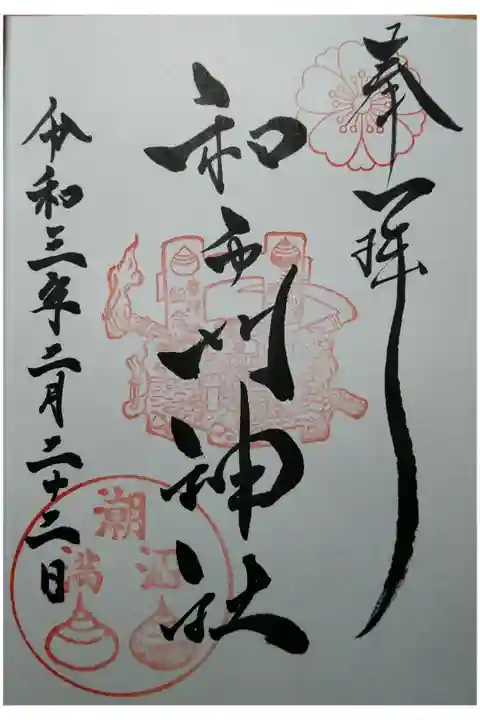 奉拝
和布刈神社
令和三年二月二十二日
潮
満